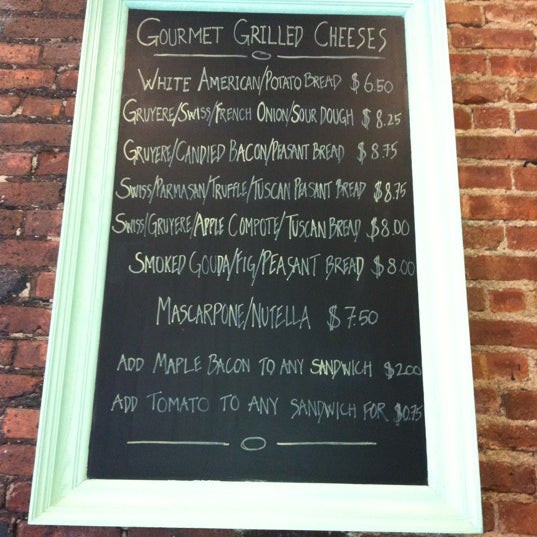 GOURMET GRILLED CHEESES
WHITE AMERICAN/POTATO BREAD $6.50
GRUYERE/SWISS/FRENCH ONION/SOUR DOUGH $8.25
GRUYERE/CANDIED BACON/PEASANT BREAD $8.75
SWISS/PARMASAN/TRUFFLE/TUSCAN PEASANT BREAD $8.75
SWISS/GRUYERE/APPLE COMPOTE/TUSCAN BREAD $8.00
SMOKED GOUDA/FIG/PEASANT BREAD $8.00
MASCARPONE/NUTELLA $7.50
ADD MAPLE BACON TO ANY SANDWICH $2.00
ADD TOMATO TO ANY SANDWICH FOR $0.75